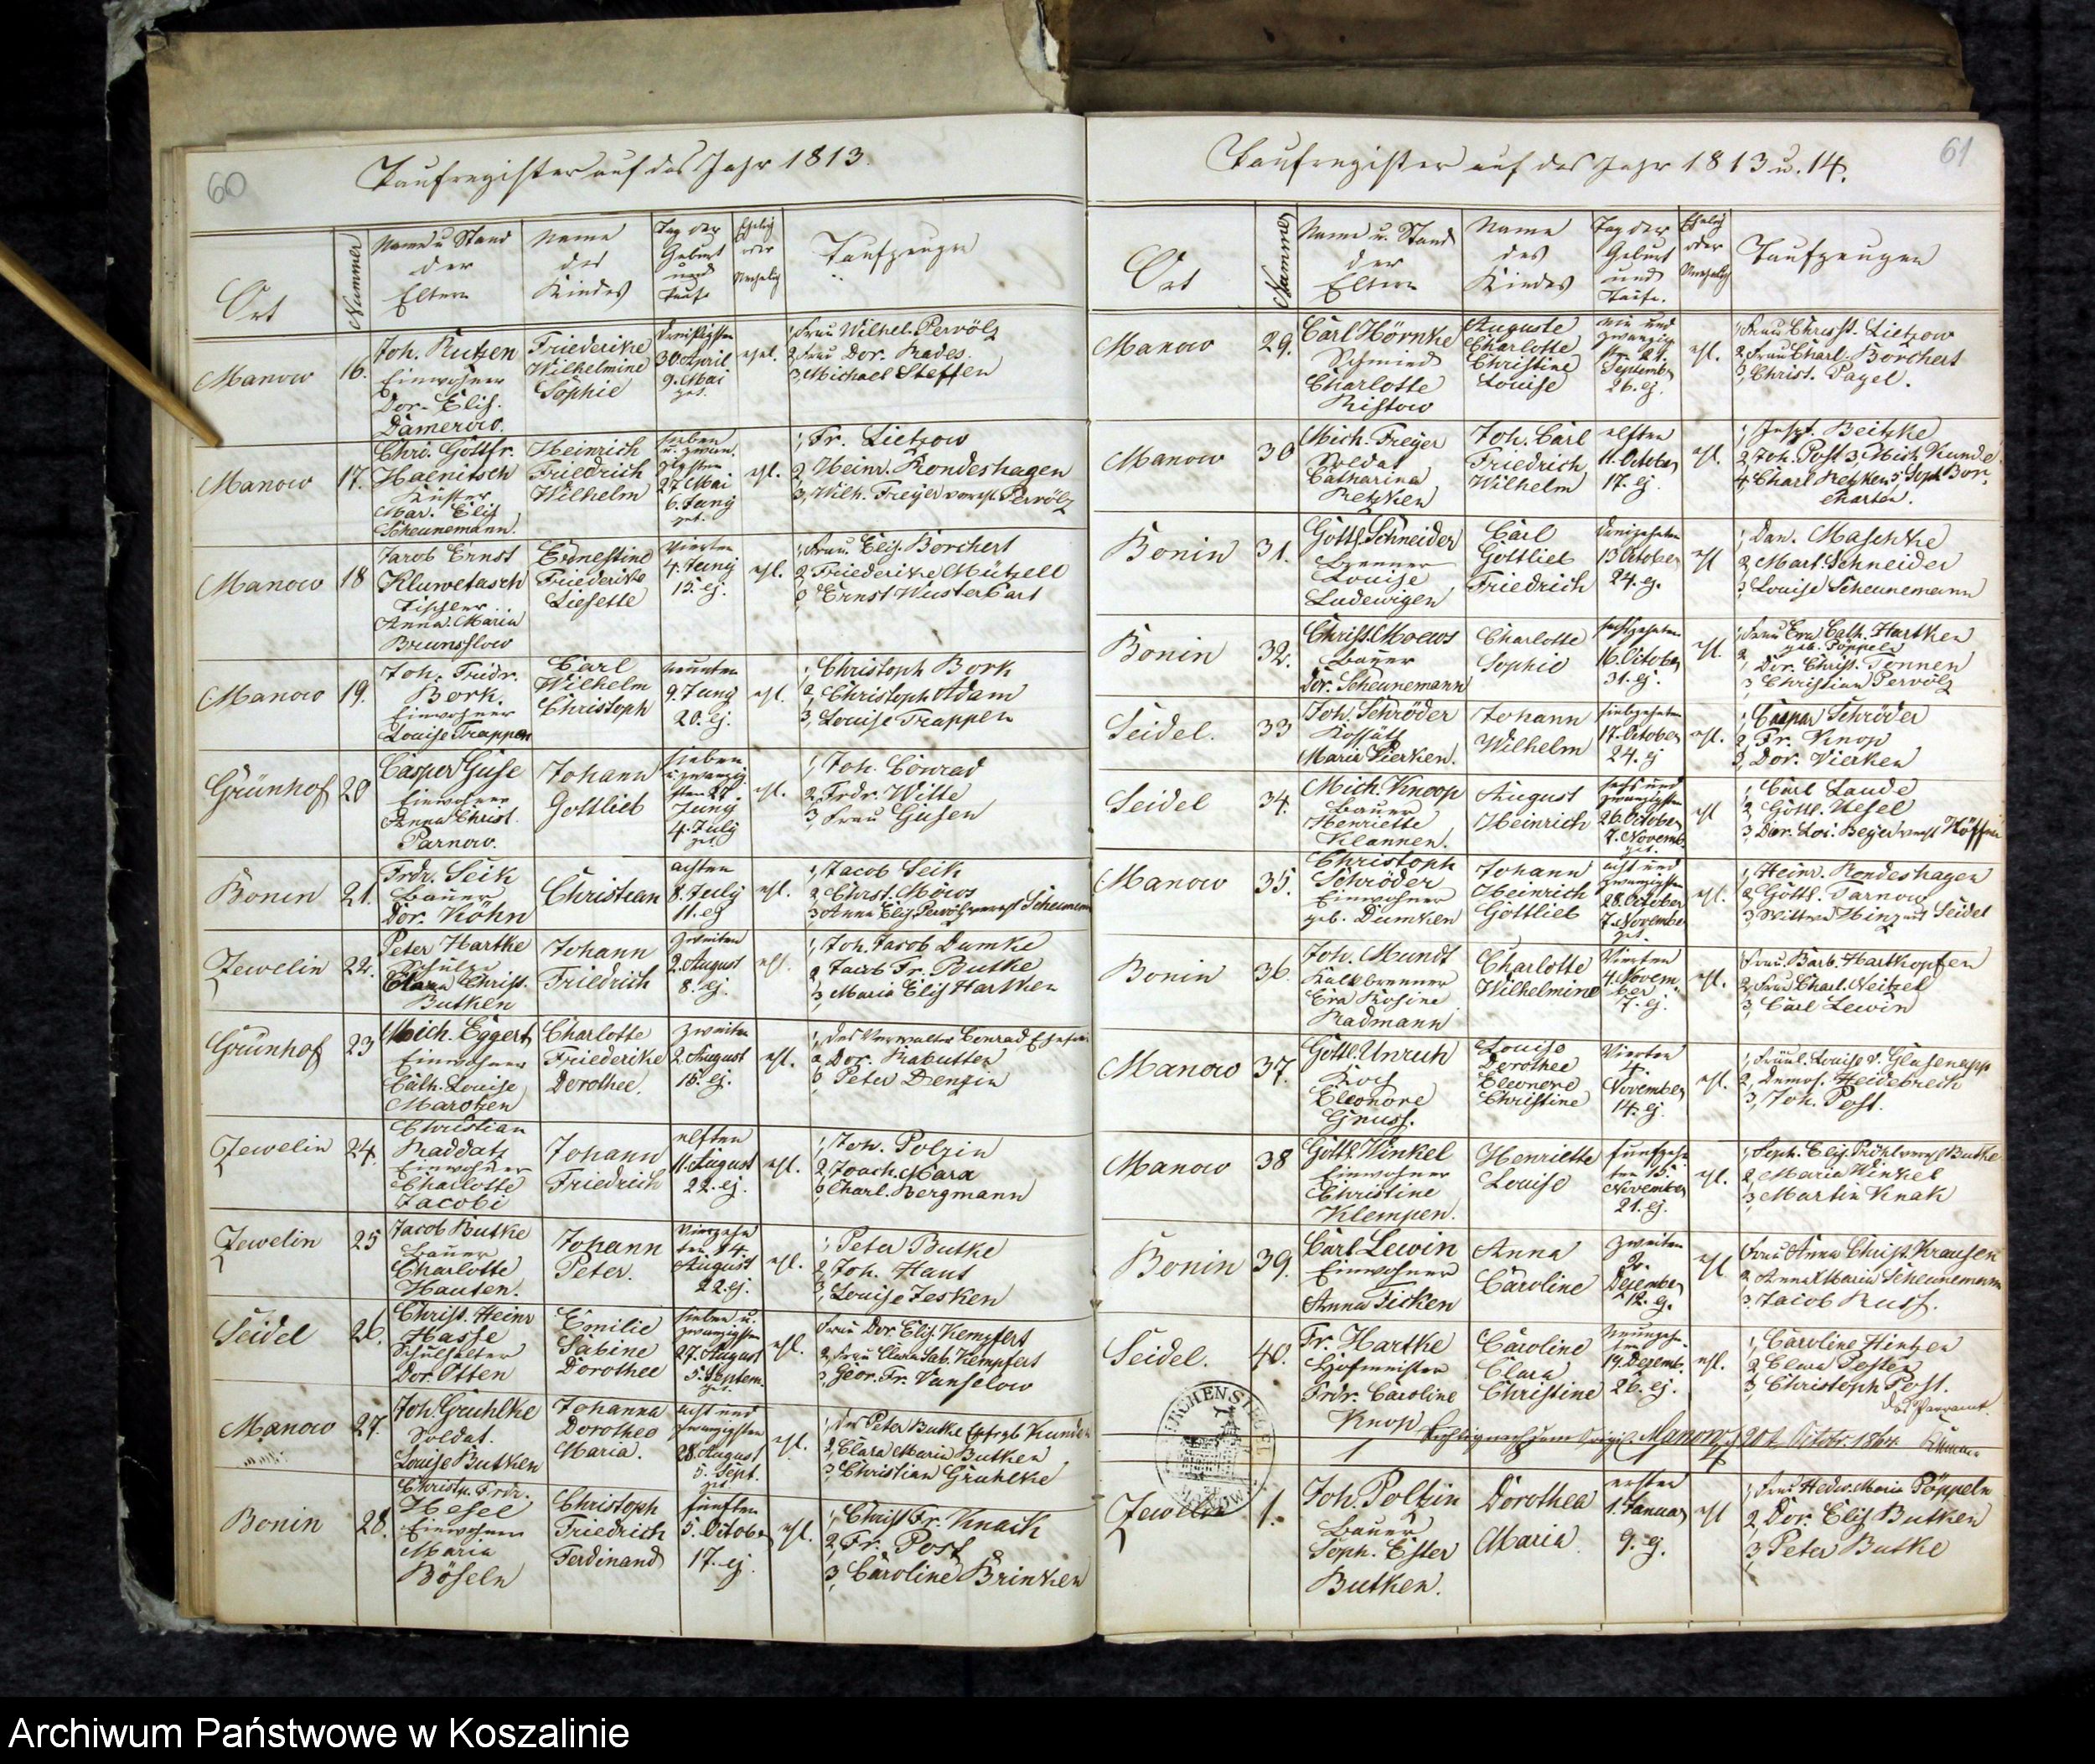 60
Taufregister auf das Jahr 1813.
Ort
Nummer
Name u Stand
der
Eltern
Name
des
Kindes
Tag der
Geburt
und
Taufe
Ehelig
oder
Unehelig
Taufzeugen
Manow
16.
Joh. Kutzen
Einwohner
Dor. Elis.
Damerow.
Friederike
Wilhelmine
Sophie
dreißigsten
30 April
9. Mai
get.
ehel.
1, Frau Wilhel. Pervölz
2, Frau Dor. Rades.
3, Michael Steffen
Manow
17.
Chri. Gottfr.
Haenitsch
Küster
Mar. Elis
Scheunemann.
Heinrich
Friedrich
Wilhelm
sieben
u. zwan.
zigsten
27. Mai
6. Juny
get.
ehl.
1, Fr. Lietzow
2, Heinr. Rondeshagen
3, Wilh. Freyer Pervölz
Manow
18
Jacob Ernst
Kluwetasch
Tischler
Anna Maria
Brunsslow
Ernestine
Friederike
Liesette
vierten
4. Juny
15. ej.
ehl.
1, Frau Elis. Borchert
2, Friederike Mützell
3, Ernst Wusterbart
Manow
19.
Joh. Fridr.
Bork.
Einwohner
Louise Trappen
Carl
Wilhelm
Christoph
neunten
9. Juny
20. ej.
ehl.
1, Christoph Bork
2, Christoph Adam
3, Louise Trappen
Grünhof
20
Casper Guse
Einwohner
Anna Christ.
Parnow.
Johann
Gottlieb
sieben
u. zwanzig
sten 27
Juny
4. July
get.
ehl.
1, Joh. Conrad
2, Frdr. Witte
3, Frau Gusen
Bonin
21.
Frdr. Seik
Bauer
Dor. Köhn
Christian
achten
8. July
11. ej
ehl.
1, Jacob Seik
2, Christ. Möws
3, Anna Elis Pervölz Scheunem
Jewelin
22.
Peter Hartke
Schulze
Clara Christ.
Butken
Johann
Friedrich
zweiten
2. August
8. ej.
ehl.
1, Joh. Jacob Dumke
2, Jacob Fr. Butke
3, Maria Elis Hartken
Grünhof
23
Mich. Eggert
Einwohner
Cath. Louise
Marotzen
Charlotte
Friederike
Dorothee.
zweiten
2. August
15. ej.
ehl.
1, des Verwalter Conrad Ehefrau
2, Dor. Rabutten
3, Peter Denzin
Jewelin
24.
Christian
Raddatz
Einwohner
Charlotte
Jacobi
Johann
Friedrich
elften
11. August
22. ej.
ehl.
1, Joh. Polzin
2, Joach. Mara
3, Charl. Bergmann
Jewelin
25
Jacob Butke
Bauer
Charlotte
Hauten.
Johann
Peter.
vierzehn
ten 14.
August
22. ej.
ehl.
1, Peter Butke
2, Joh. Haut
3, Louise Jesken
Seidel
26.
Christ. Heinr
Hasse
Schulhalter
Dor. Otten
Emilie
Sabine
Dorothee
sieben u.
zwanzigsten
27. August
5. Septem.
get.
ehl.
Frau Dor. Elis. Kempfert
2, Frau Clara Sab. Kempfert
3, Geor. Fr. Vanselow
Manow
27.
Joh. Gruhlke
Soldat.
Louise Butken
Johanna
Dorothee
Maria.
acht und
zwanzigsten
28. August
5. Sept.
get.
ehl.
1, des Peter Butke Ehfr gb Kunden
2, Clara Maria Butken
3, Christian Gruhlke
Bonin
28.
Christn. Frdr.
Hesel
Einwohner
Maria
Böseln
Christoph
Friedrich
Ferdinand
fünften
5. October
17. ej.
ehl.
1, Christ Fr. Knack
2, Fr. Post
3, Caroline Brinken
61
Taufregister auf das Jahr 1813 u. 14.
Ort
Nummer
Name u. Stand
der
Eltern
Name
des
Kindes
Tag der
Geburt
und
Taufe.
Ehelig
oder
Unehelig
Taufzeugen
Manow
29.
Carl Hörnke
Schmied
Charlotte
Ristow
Auguste
Charlotte
Christine
Louise
ein und
zwanzig
sten 21.
September
26. ej.
ehl.
1, Frau Christ. Lietzow
2, Frau Charl. Borchert
3, Christ. Pagel.
Manow
30
Mich. Freyer
Soldat
Catharina
Retzken
Joh. Carl
Friedrich
Wilhelm
elften
11. October
17. ej.
ehl.
1, Beitzke
2, Joh. Post 3, Mich. Kunde
4, Charl Retzken 5, Soph Bor-
charten.
Bonin
31.
Gottl. Schneider
Brenner
Louise
Ludewigen
Carl
Gottlieb
Friedrich
dreizehnten
13 October
24. ej.
ehl
1, Dan. Maschke
2, Mart. Schneider
3, Louise Scheunemann
Bonin
32.
Christ. Moews
Bauer
Dor. Scheunemann
Charlotte
Sophie
sechszehnten
16. October
31. ej.
ehl.
1, Frau Eva Cath. Hartken
geb. Pöppeln
2, Dor. Christ. Tonnen
3, Christian Pervölz
Seidel.
33
Joh. Schröder
Kossäth
Maria Vierken.
Johann
Wilhelm
siebzehnten
17. October
24. ej
ehl.
1, Caspar Schröder
2, Fr. Knop
3, Dor. Vierken
Seidel
34.
Mich. Knoop
Bauer
Henriette
Klannen.
August
Heinrich
sechs und
zwanzigsten
26. October
7. Novemb.
get.
ehl
1, Carl Laude
2, Gottl. Hesel
3, Dor. Loi. Beyer
Manow
35.
Christoph
Schröder
Einwohner
geb. Dumken
Johann
Heinrich
Gottlieb
acht und
zwanzigsten
28. October
7. November
get.
ehl.
1, Heinr. Rondeshagen
2, Gottl. Parnow
3, Wittwe Hinz aus Seidel
Bonin
36.
Joh. Mundt
Kalkbrenner
Eva Rosine
Radmann
Charlotte
Wilhelmine
vierten
4. Novem
ber
7. ej.
ehl.
Frau Barb. Hartkopfen
2, Frau Charl. Neitzel
3, Carl Lewin
Manow
37.
Gottl. Unruh
Koch
Eleonore
Gnuss.
Louise
Dorothee
Eleonore
Christine
vierten
4.
November
14. ej.
ehl.
1, Fräul. Louise v. Glasenapp
2, Demois. Heidebreck
3, Joh. Post.
Manow
38
Gottl. Winkel
Einwohner
Christine
Klempen.
Henriette
Louise
funfzehn
ten 15
November
21. ej.
ehl.
1, Soph. Elis. Pröhl Butke
2, Maria Winkel
3, Martin Knak
Bonin
39.
Carl Lewin
Einwohner
Anna Ficken
Anna
Caroline
zweiten
2.
Dezember
12. ej.
ehl
Frau Anna Christ. Krausen
2, Anna Maria Scheunemann
3, Jacob Russ.
Seidel.
40.
Fr. Hartke
Hofmeister
Frdr. Caroline
Knop
Caroline
Clara
Christine
neunzehn
ten
19. Dezemb.
26. ej.
ehl.
1, Caroline Hintzen
2, Clara Posten
3, Christoph Post.
Das Pfarramt.
Richtig nach dem Origil. Manow, d 20t. Octobr. 1864.
KIRCHEN SIEGEL
MANOW
Jewelin
1.
Joh. Poltzin
Bauer
Soph. Ester
Butken.
Dorothea
Maria
ersten
1. Januar
9. ej.
ehl
1, Frau Hedw. Maria Pöppeln
2, Dor. Elis Butken
3, Peter Butke
Archiwum Państwowe w Koszalinie